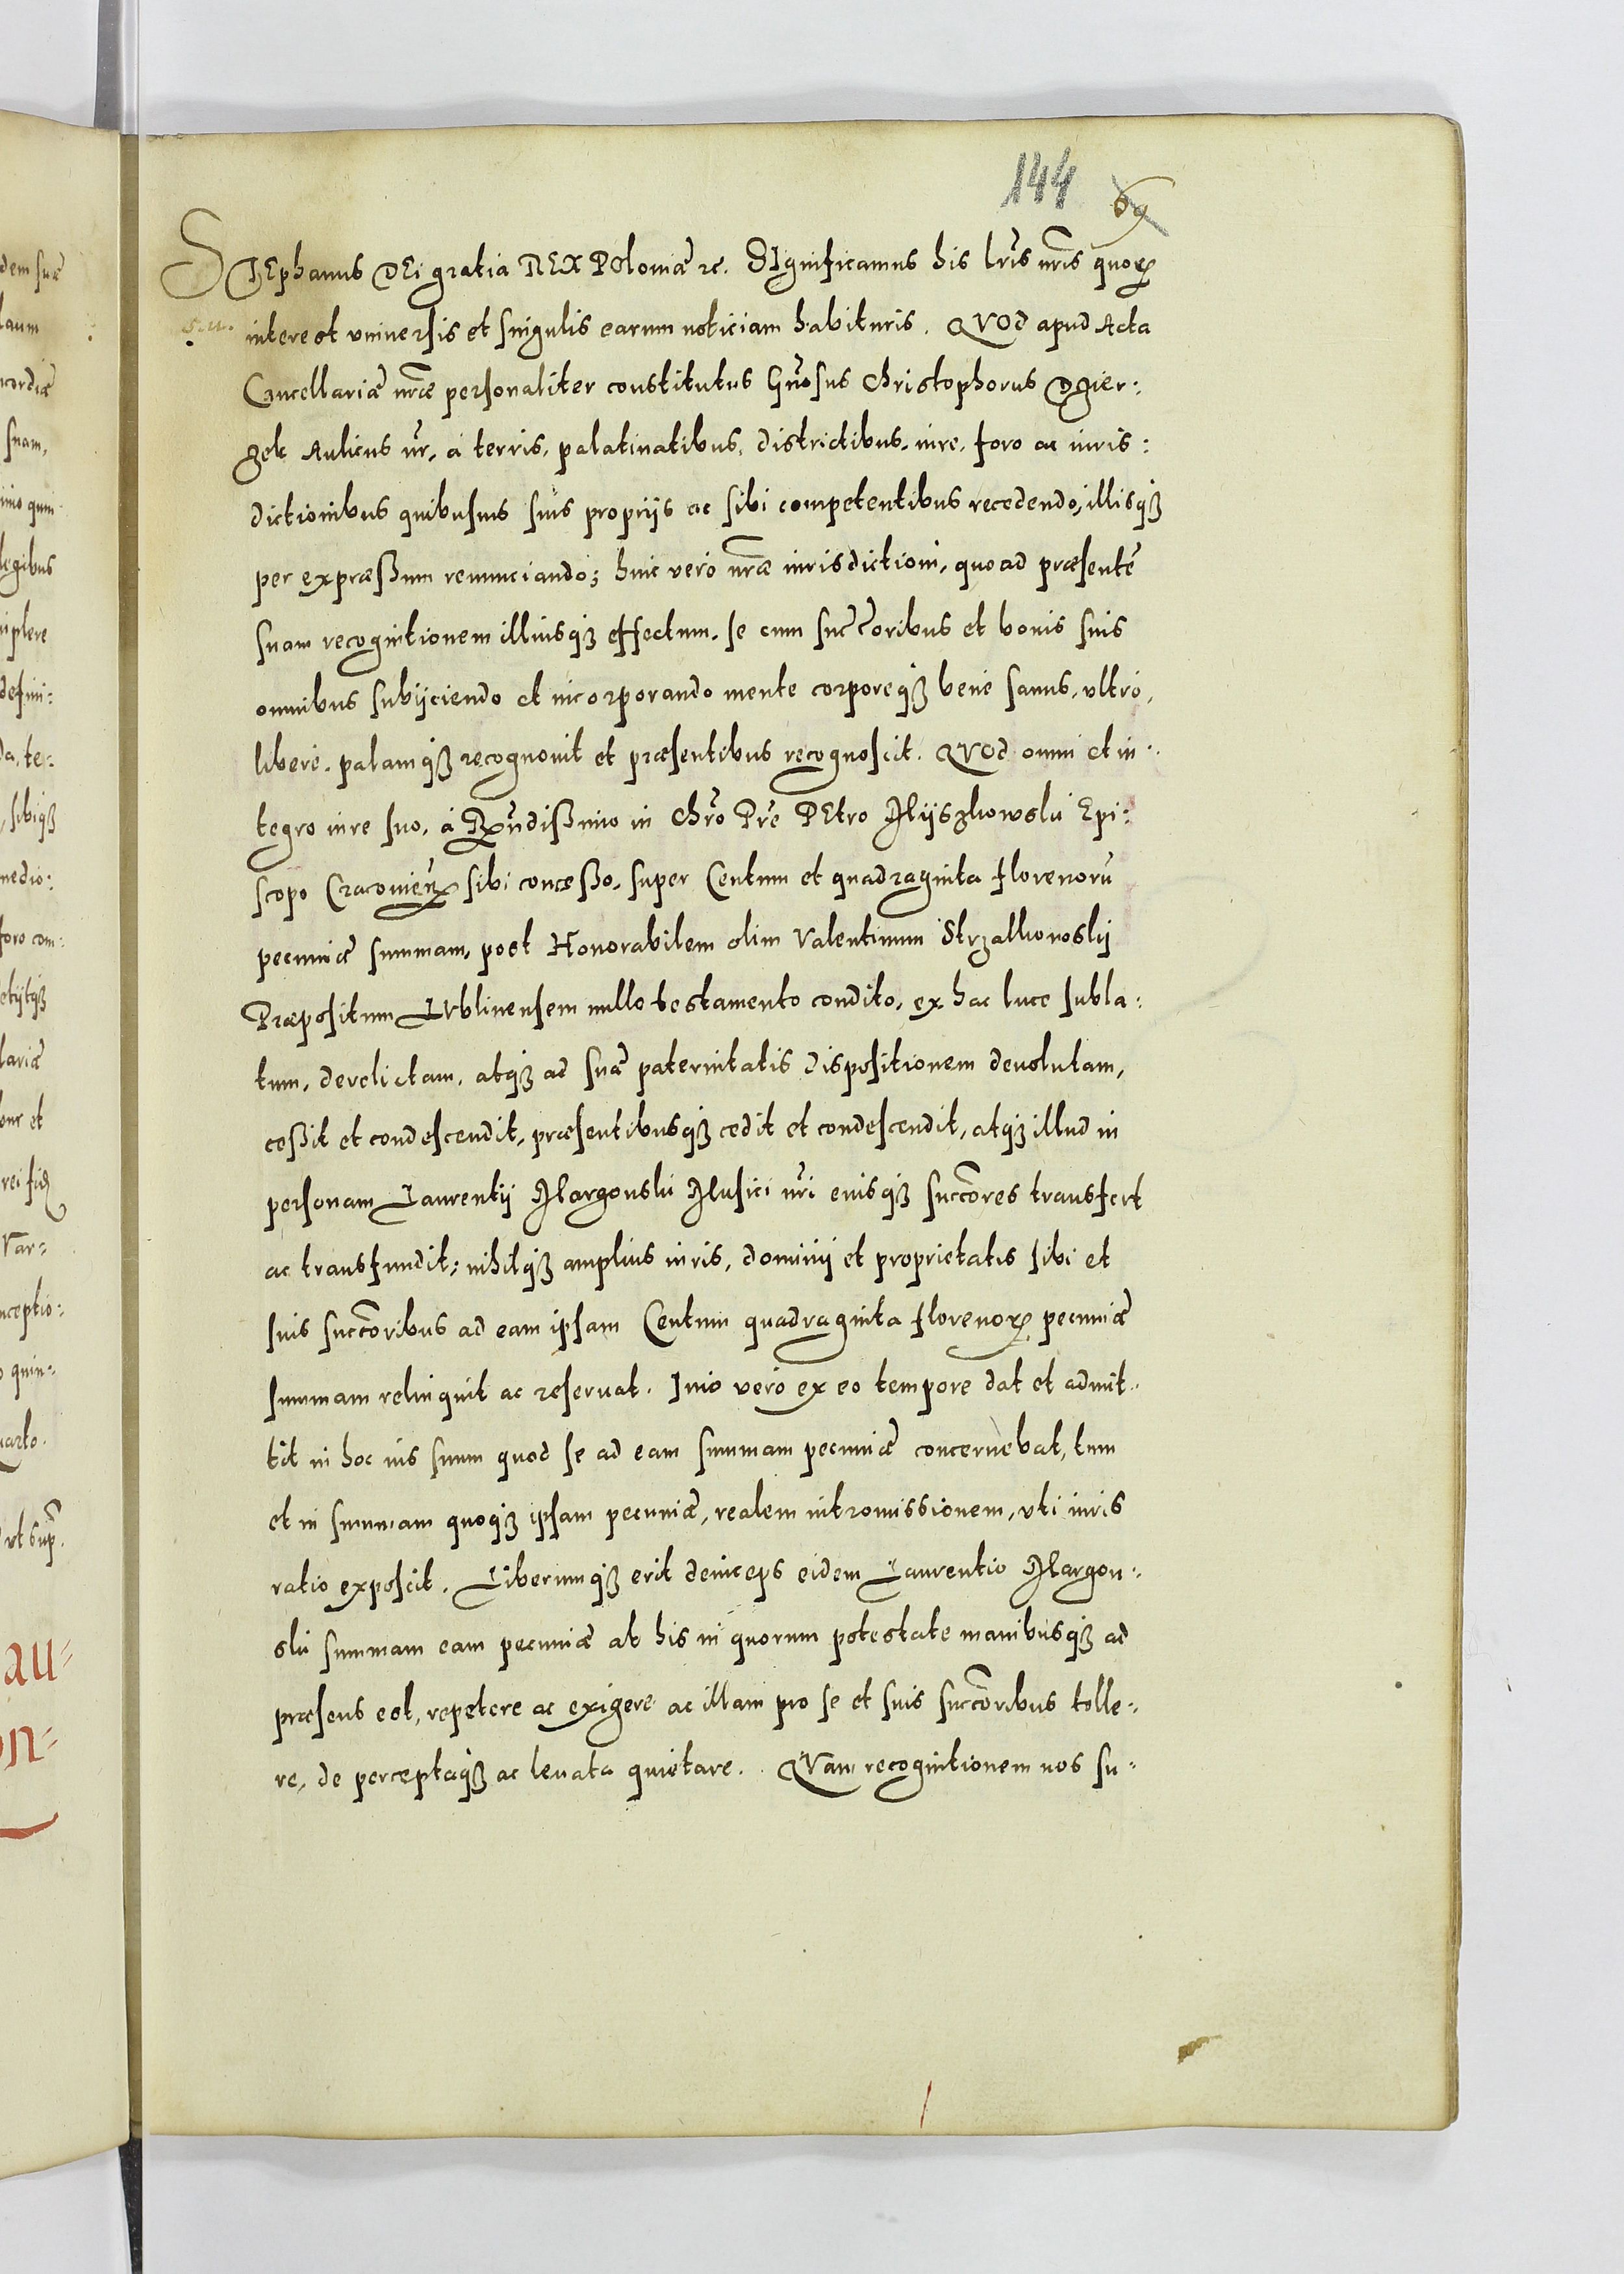 144 69
STEphanus DEi gratia REX POloniæ ꝛc. SIgnificamus his lr̃is nr̃is quoꝝ
interest vniuersis et singulis earum noticiam habituris. QVOd apud Acta
Cancellariæ nr̃æ personaliter constitutus Gn̄osus Christophorus Dzier:
gek Aulicus nr̃, à terris, palatinatibus, districtibus, iure, foro ac iuris:
dictionibus quibusuis suis proprijs ac sibi competentibus recedendo, illisqꝫ
per expræßum renunciando; huic verò nr̃æ iurisdictioni, quo ad præsentē
suam recognitionem illiusqꝫ effectum, se cum succ̄oribus et bonis suis
omnibus subijciendo et incorporando mente corporeqꝫ benè sanus, vltrò,
liberè, palamqꝫ recognouit et præsentibus recognoscit. QVOd omni et in:
tegro iure suo, à Rṽdißimo in Chr̃o Pr̃e PEtro Myszkowski Epi:
scopo Cracouieñ sibi conceßo, super Centum et quadraginta florenorū
pecuniæ summam, post Honorabilem olim Valentinum Strzałkowskij
Præpositum LVblinensem nullo testamento condito, ex hac luce subla:
tum, derelictam, atqꝫ ad suæ paternitatis dispositionem deuolutam,
ceßit et condescendit, præsentibusqꝫ cedit et condescendit, atqꝫ illud in
personam Laurentij Margonski Musici nr̃i eiusqꝫ succ̄ores transfert
ac transfundit; nihilqꝫ amplius iuris, dominij et proprietatis sibi et
suis succ̄oribus ad eam ipsam Centum quadraginta florenoꝝ pecuniæ
summam relinquit ac reseruat. Imo verò ex eo tempore dat et admit:
tit in hoc ius suum quod se ad eam summam pecuniæ concernebat, tum
et in summam quoqꝫ ipsam pecuniæ, realem intromissionem, vti iuris
ratio exposcit. Liberumqꝫ erit deinceps eidem Laurentio Margon:
ski summam eam pecuniæ ab his in quorum potestate manibusqꝫ ad
præsens est, repetere ac exigere ac illam pro se et suis succ̄oribus tolle:
re, de perceptaqꝫ ac leuata quietare. QVam recognitionem nos su: